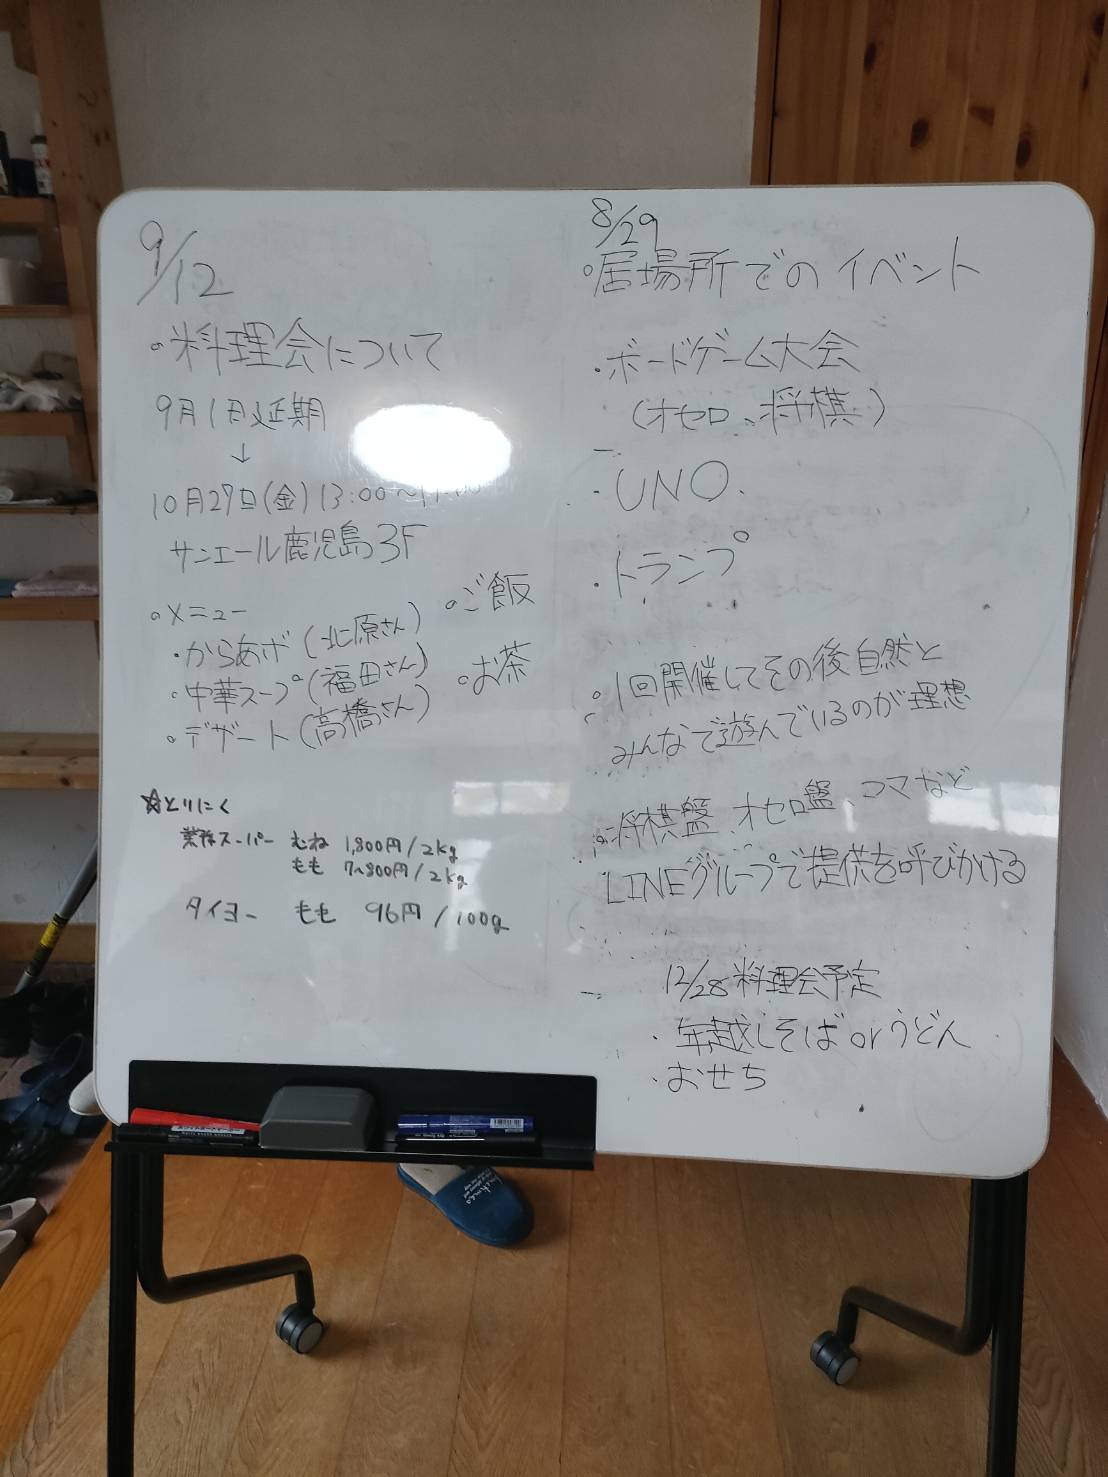 9/12
○料理会について
9月1日延期
↓
10月27日(金)13:00〜
サンエール鹿児島3F
○メニュー
・からあげ(北原さん)
・中華スープ(福田さん)
・デザート(高橋さん)
○ご飯
○お茶
☆とりにく
業務スーパー むね 1,800円/2kg
もも 7~800円/2kg
タイヨー もも 96円/100g
8/29
○居場所でのイベント
・ボードゲーム大会
(オセロ、将棋)
・UNO.
・トランプ
○1回開催してその後自然と
みんなで遊んでいるのが理想
○将棋盤、オセロ盤、コマなど
LINEグループで提供を呼びかける
12/28料理会予定
・年越しそばorうどん
・おせち